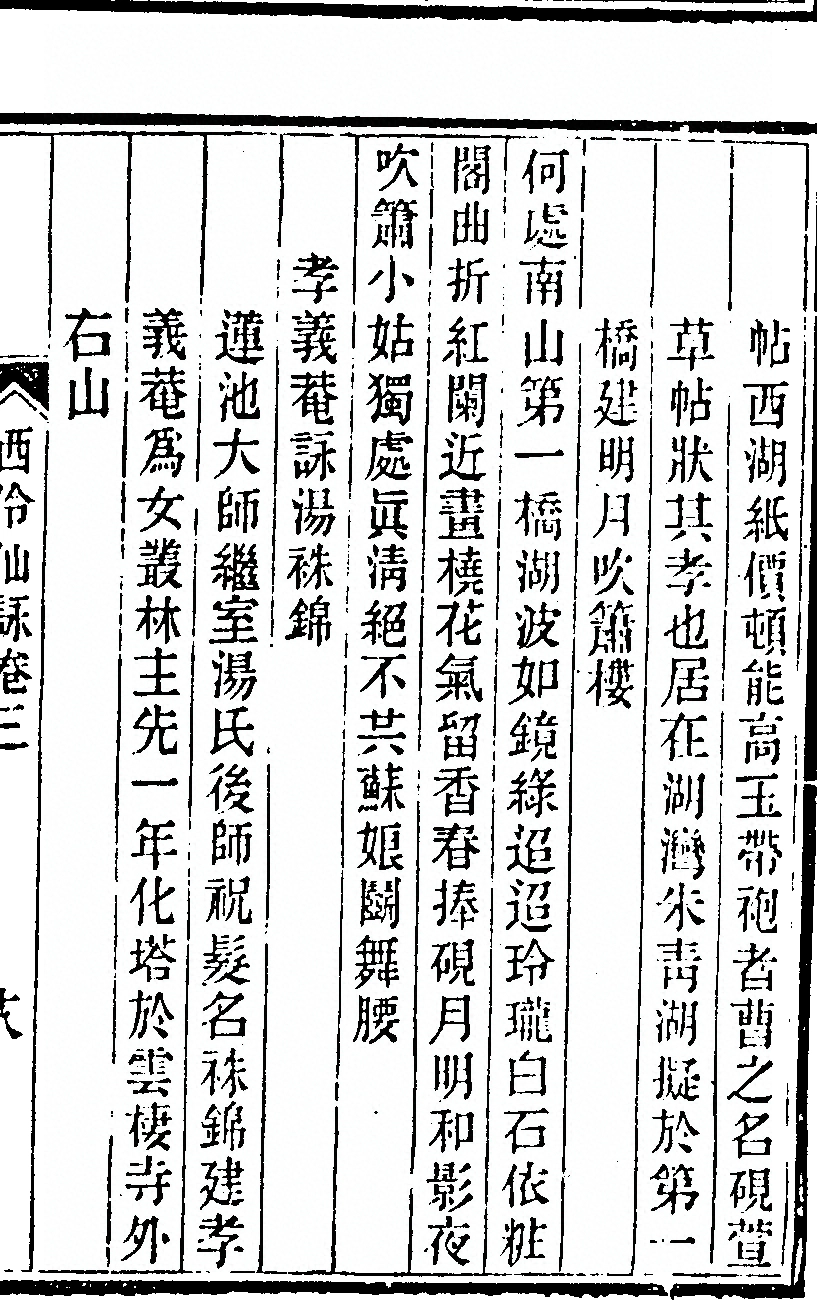 帖西湖紙價頓能高玉帶袍者曹之名硯萱
草帖狀其孝也居在湖灣朱靑湖擬於第一
橋建明月吹簫樓
何處南山第一橋湖波如鏡綠迢迢玲瓏白石依粧
閣曲折紅闌近畫橈花氣留香春捧硯月明和影夜
吹簫小姑獨處眞淸絕不共蘇娘鬭舞腰
孝義菴詠湯祩錦
蓮池大師繼室湯氏後師祝髮名祩錦建孝
義菴爲女叢林主先一年化塔於雲棲寺外
右山
西泠仙詠卷三